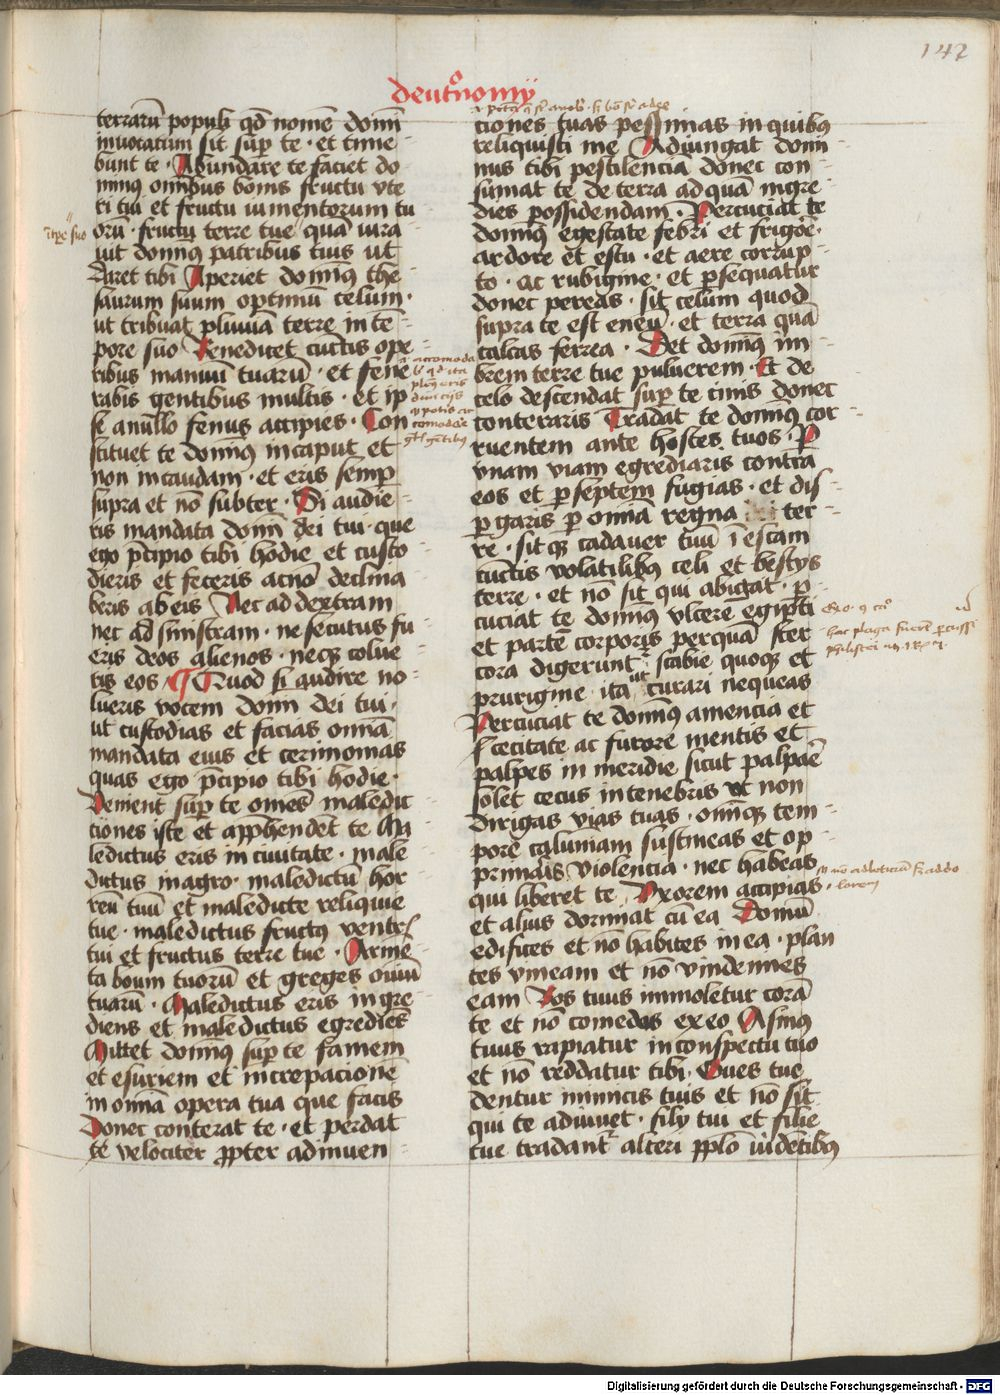 142
deut°nomy
terrarū populi qd nomē domī
inuocatum sit sup te · et time
bunt te · Abundare te faciet do
minus omībus bonis fructu vte
ri tui et fructu iumentorum tu
orū · fructu terre tue quā iura
uit domin9 patribus tuis ut
daret tibi Aperiet domin9 the
saurum suum optimū celum ·
ut tribuat pluuiā terre in tē
pore suo Benedicet cūctis ope
ribus manuū tuarū · et fene
rabis gentibus multis · et ip
se a nullo fenus accipies · Con
stituet te domin9 in caput et
non in caudam · et eris semp
supra et nō subter · Si audie
ris mandata domī dei tui · que
ego p̄cipio tibi hodie et custo
dieris et feceris ac nō declina
beris ab eis Nec ad dextram
nec ad sinistram · ne secutus fu
eris deos alienos · neq3 colue
ris eos ¶ Quod si audire no
lueris vocem domī dei tui ·
ut custodias et facias omīa
mandata eius et cerimonias
quas ego p̄cipio tibi hodie ·
Venient sup te omēs maledic
tiones iste et app̄hendēt te Ma
ledictus eris in ciuitate · male
dictus in agro · maledictū hor
reū tuū et maledicte reliquie
tue · maledictus fruct9 ventr̄
tui et fructus terre tue · Arme
ta boum tuorū et greges ouiū
tuarū · Maledictus eris ingre
diens et maledictus egrediēs
Mittet domin9 sup te famem
et esuriem et increpacionē
in omīa opera tua que facis
Donec conterat te · et perdat
te velociter ꝓpter adinuen
tiones tuas pessimas in quib9
reliquisti me Adiungat domi
nus tibi pestilenciā donec con
sumat te de terra ad quā ingre
dies possidendam · Percuciat te
domin9 egestate febri et frigoe ·
ardore et estu · et aere corrup
to · ac rubigine · et p̄sequatur
donec pereas · sit celum quod
supra te est eneū · et terra quā
calcas ferrea · Det domin9 im
brem terre tue puluerem · Et de
celo descendat sup te cinis donec
conteraris Tradat te domin9 cor
ruentem ante hostes tuos · P
vnam viam egrediaris contra
eos et p septem fugias · et dis
pgaris p omīa regna ter
re · sitq3 cadauer tuū ī escam
cūctis volatilib9 celi et bestys
terre · et nō sit qui abigat · P
cuciat te domin9 vlcere egipti
et partē corporis perquā ster
cora digerunt2 scabie quoq3 et
prurigine ita ut curari nequeas
Percuciat te domin9 amencia et
cecitate ac furore mentis et
palpes in meridie sicut palpaē
solet cecus in tenebris et non
dirigas vias tuas · omīq3 tem
pore calumiam sustineas et op
primaris violencia · nec habeas
qui liberet te Vxorem accipias
et alius dormiat cū ea Domū
edifices et nō habites in ea · plan
tes vineam et nō vindemies
eam Bos tuus immoletur corā
te et nō comedas ex eo Asin9
tuus rapiatur in conspectu tuo
et nō reddatur tibi · Oues tue
dentur inimicis tuis et nō sit
qui te adiuuet · fily tui et filie
tue tradant2 alteri pplō uidētib9
Digitalisierung gefördert durch die Deutsche Forschungsgemeinschaft - DFG